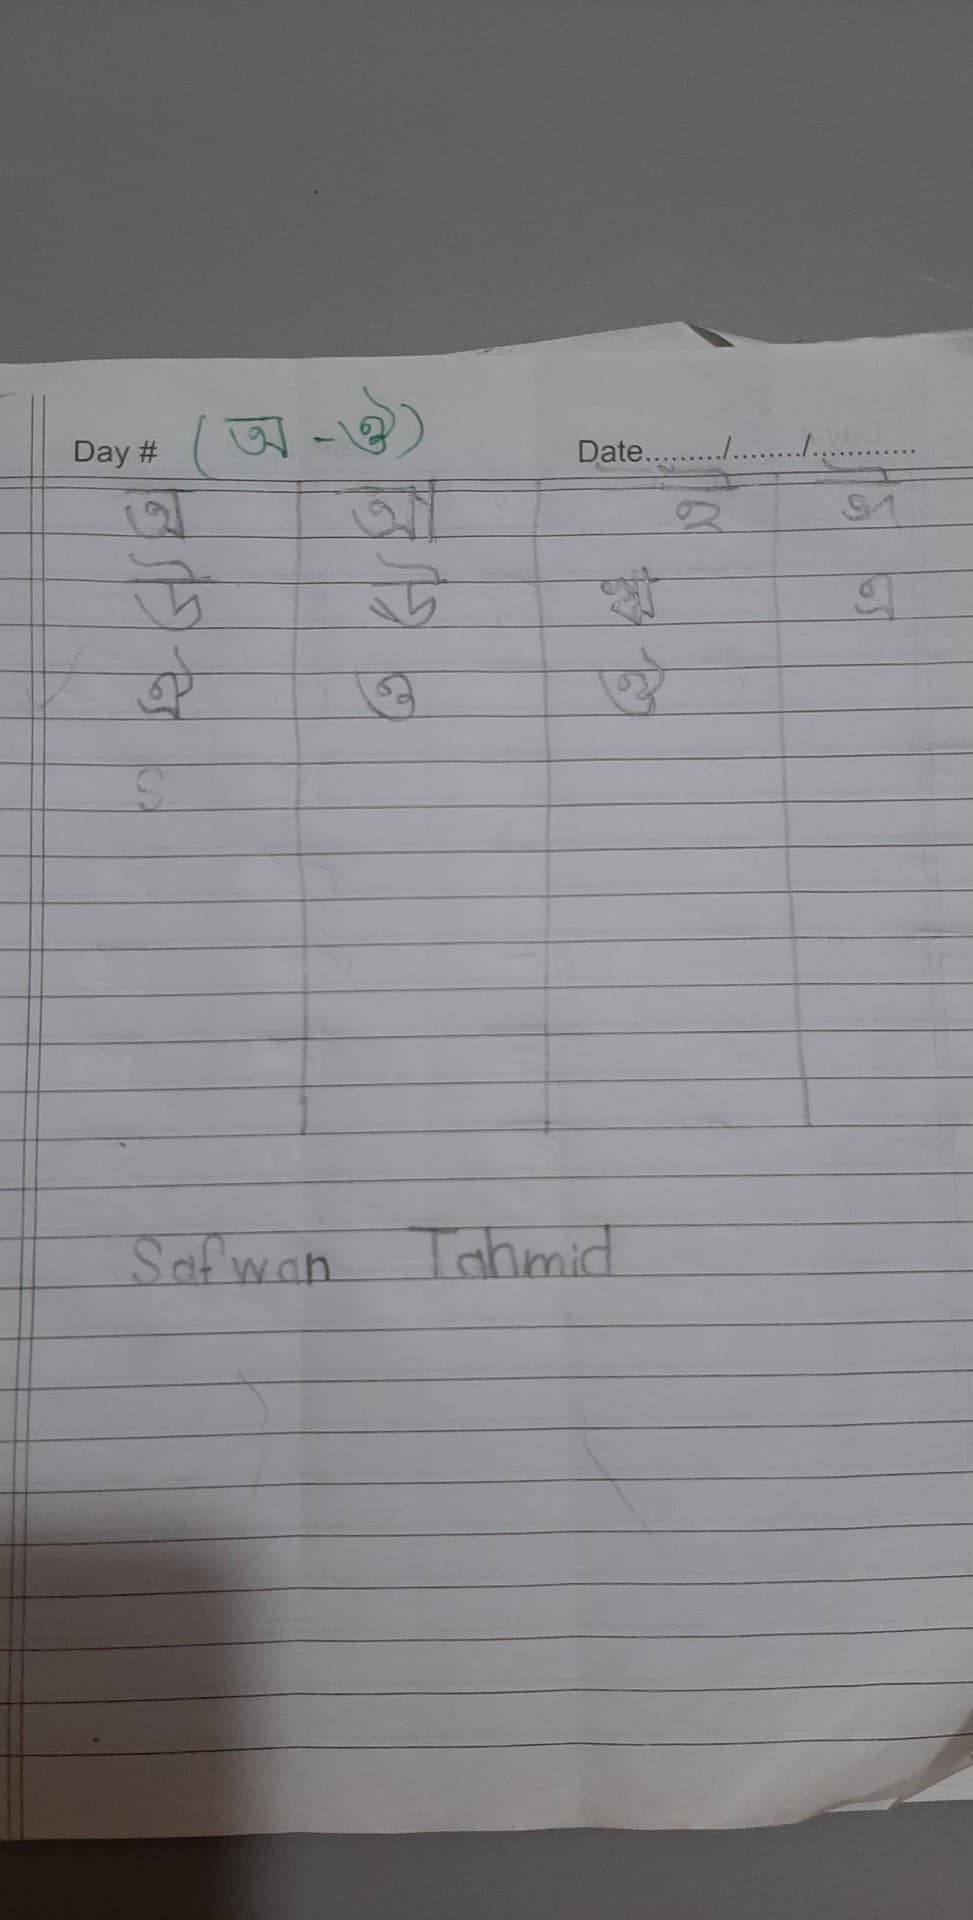 Day # (অ - ঔ) Date........../........./............
অ আ ই ঈ
উ ঊ ঋ এ
ঐ ও ঔ
S
Safwan Tahmid